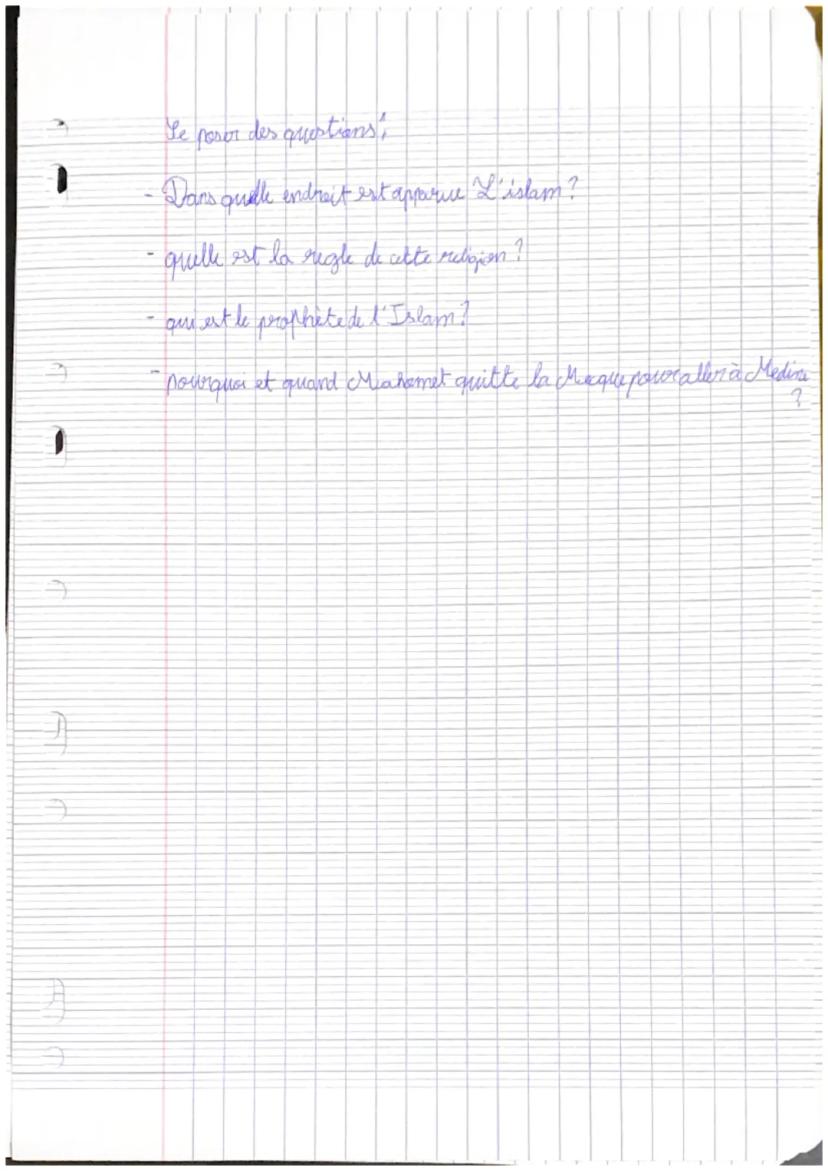 Se poser des questions :
- Dans quelle endroit est apparue L'islam ?
- quelle est la regle de cette religion ?
- qui est le prophète de l'Islam ?
- pourquoi et quand Mahomet quitte la Mecque pour aller à Medine
?